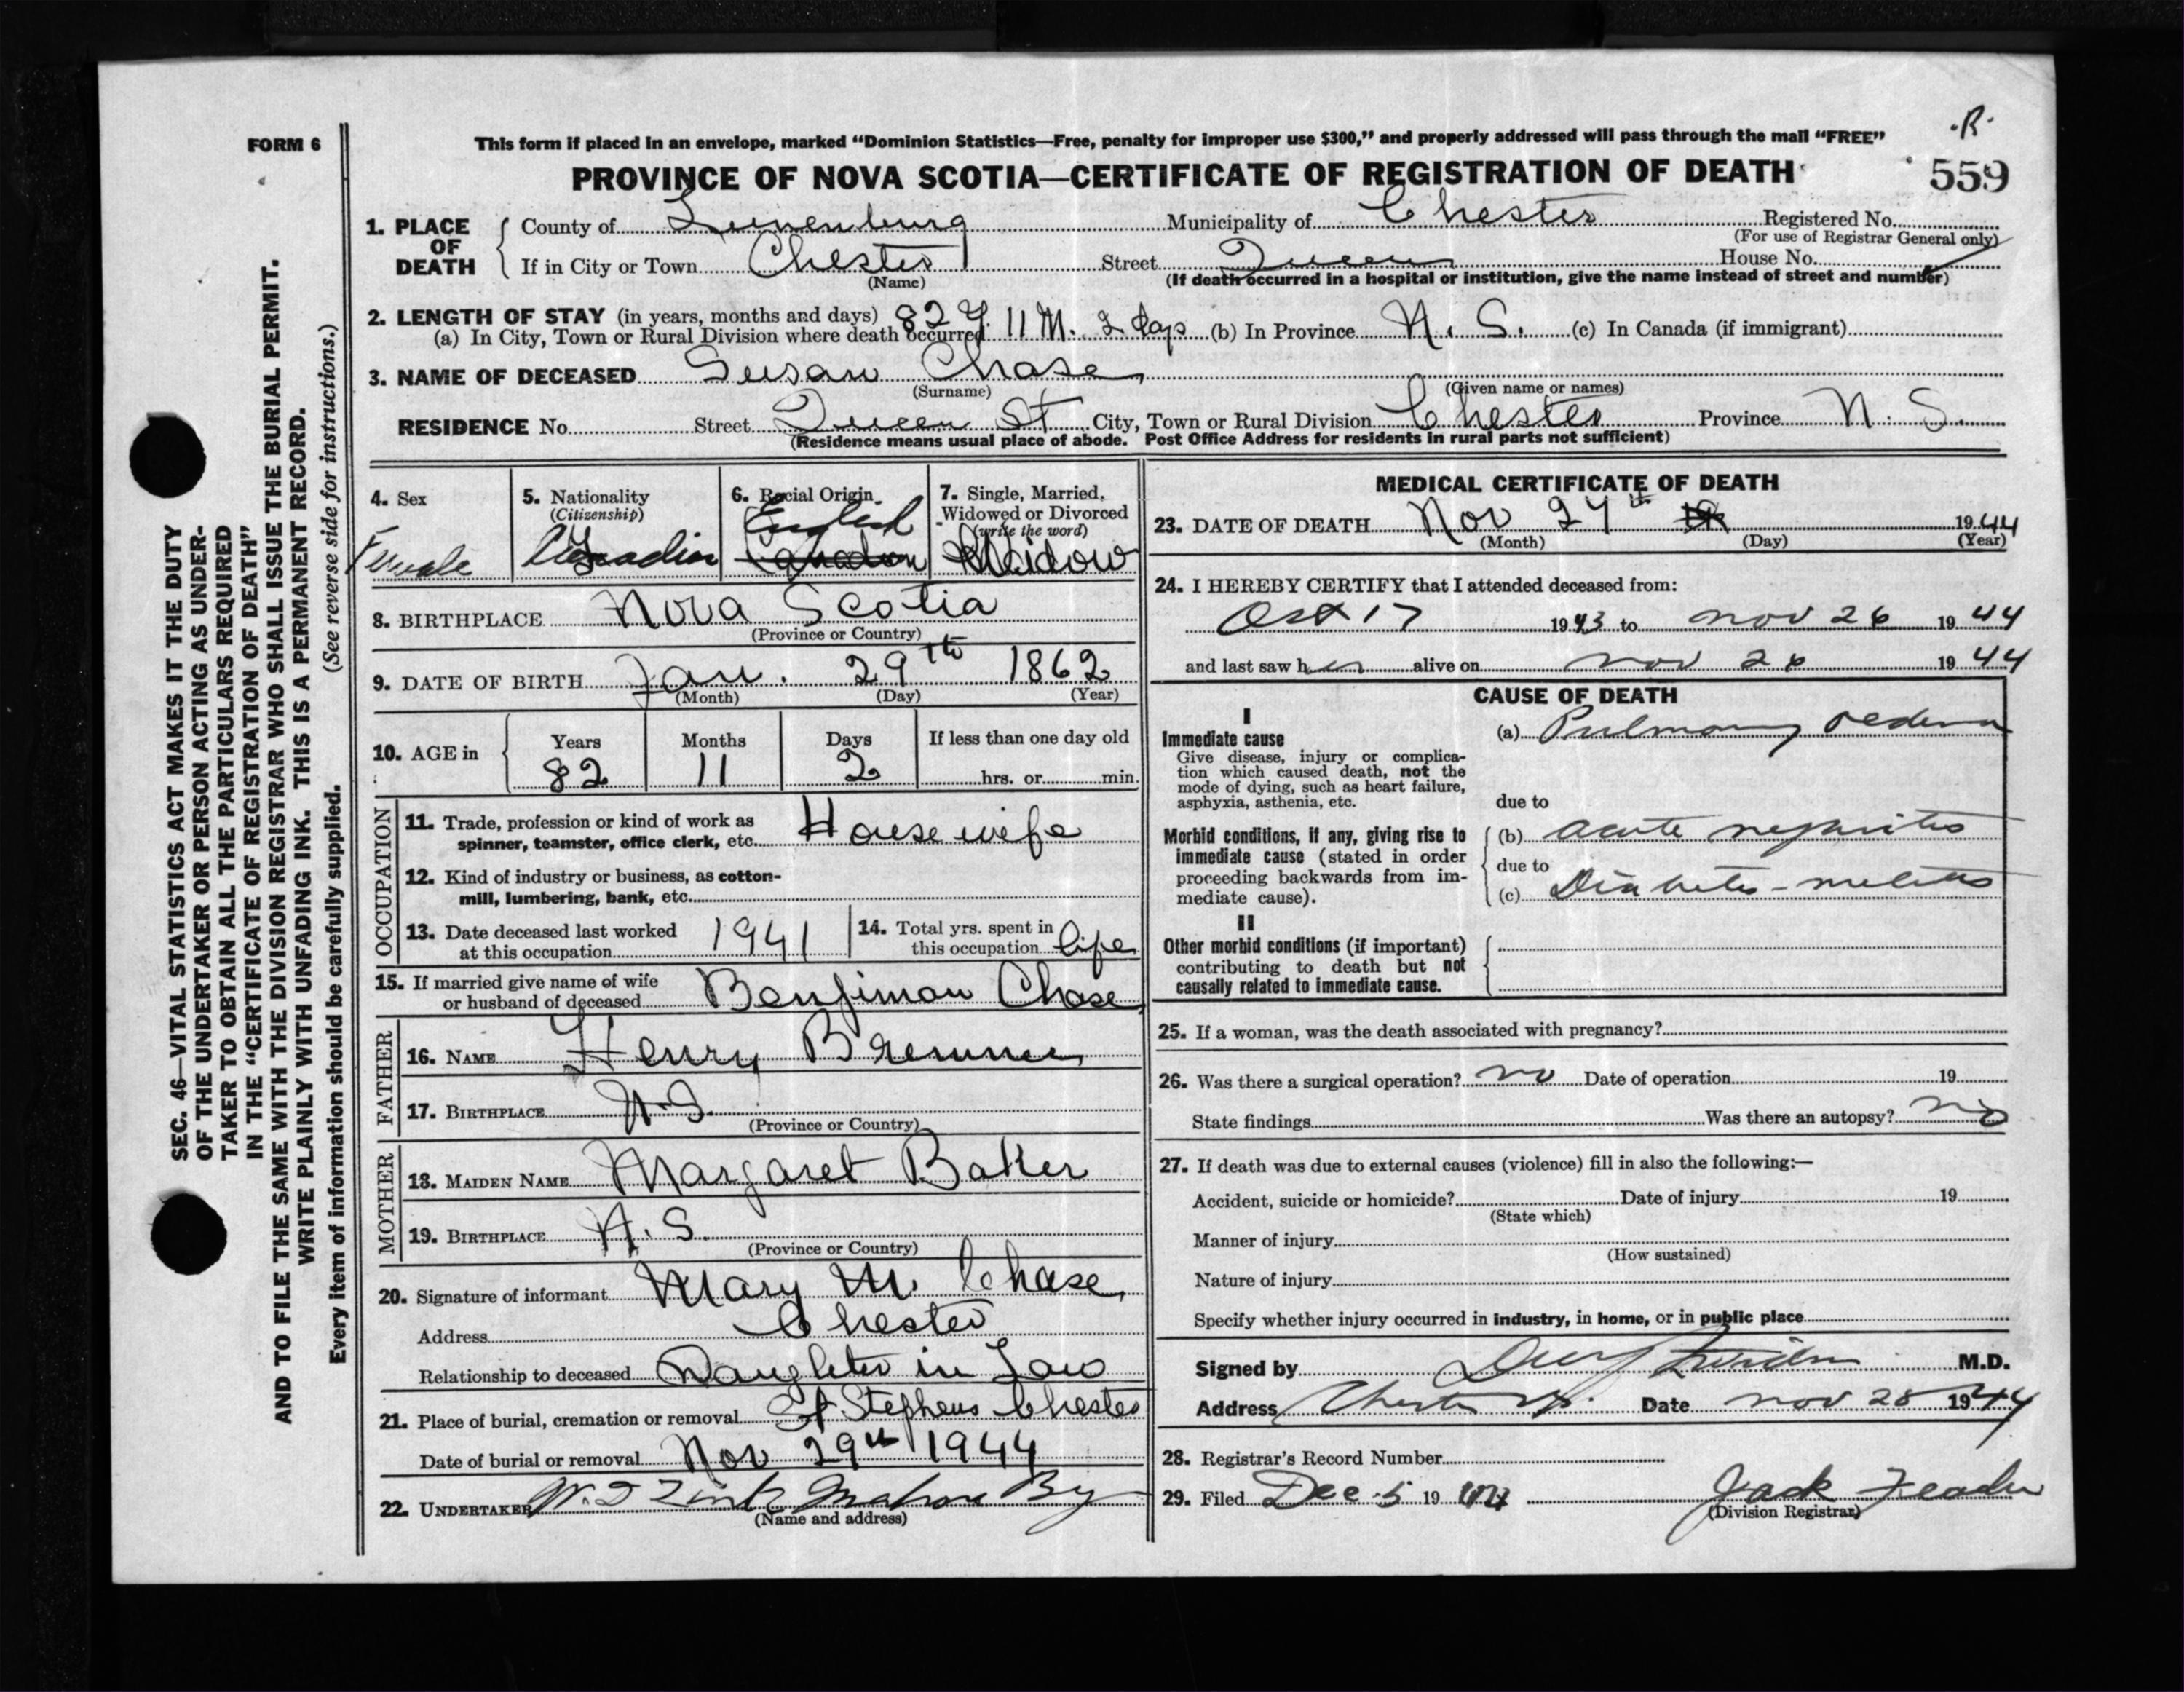 FORM 6
This form if placed in an envelope, marked “Dominion Statistics—Free, penalty for improper use $300,” and properly addressed will pass through the mail “FREE”
.R.
PROVINCE OF NOVA SCOTIA—CERTIFICATE OF REGISTRATION OF DEATH
559
1. PLACE OF DEATH
County of Lunenburg Municipality of Chester Registered No.
(For use of Registrar General only)
If in City or Town Chester Street Queen House No.
(Name) (If death occurred in a hospital or institution, give the name instead of street and number)
2. LENGTH OF STAY (in years, months and days)
(a) In City, Town or Rural Division where death occurred 82 Y. 11 M. 2 days (b) In Province N. S. (c) In Canada (if immigrant)
3. NAME OF DECEASED Susan Chase
(Surname) (Given name or names)
RESIDENCE No. Street Queen St City, Town or Rural Division Chester Province N. S.
(Residence means usual place of abode. Post Office Address for residents in rural parts not sufficient)
SEC. 46—VITAL STATISTICS ACT MAKES IT THE DUTY
OF THE UNDERTAKER OR PERSON ACTING AS UNDER-
TAKER TO OBTAIN ALL THE PARTICULARS REQUIRED
IN THE “CERTIFICATE OF REGISTRATION OF DEATH”
AND TO FILE THE SAME WITH THE DIVISION REGISTRAR WHO SHALL ISSUE THE BURIAL PERMIT.
WRITE PLAINLY WITH UNFADING INK. THIS IS A PERMANENT RECORD.
Every item of information should be carefully supplied. (See reverse side for instructions.)
4. Sex
Female
5. Nationality
(Citizenship)
Canadian
6. Racial Origin
English
Canadian
7. Single, Married,
Widowed or Divorced
(write the word)
Widow
8. BIRTHPLACE Nova Scotia
(Province or Country)
9. DATE OF BIRTH Jan. 29th 1862
(Month) (Day) (Year)
10. AGE in
Years Months Days If less than one day old
82 11 2 hrs. or min.
OCCUPATION
11. Trade, profession or kind of work as
spinner, teamster, office clerk, etc. Housewife
12. Kind of industry or business, as cotton-
mill, lumbering, bank, etc.
13. Date deceased last worked
at this occupation 1941
14. Total yrs. spent in
this occupation life
15. If married give name of wife
or husband of deceased Benjiman Chase
FATHER
16. NAME Henry
17. BIRTHPLACE N.S.
(Province or Country)
MOTHER
18. MAIDEN NAME Margaret Baker
19. BIRTHPLACE N. S.
(Province or Country)
20. Signature of informant Mary M. Chase
Address Chester
Relationship to deceased Daughter in Law
21. Place of burial, cremation or removal St Stephens Chester
Date of burial or removal Nov 29th 1944
22. UNDERTAKER Mahone By
(Name and address)
MEDICAL CERTIFICATE OF DEATH
23. DATE OF DEATH Nov 27th 1944
(Month) (Day) (Year)
24. I HEREBY CERTIFY that I attended deceased from:
Oct 17 1943 to Nov 26 1944
and last saw her alive on Nov 26 1944
CAUSE OF DEATH
I
Immediate cause
Give disease, injury or complica-
tion which caused death, not the
mode of dying, such as heart failure,
asphyxia, asthenia, etc.
(a) Pulmonary oedema
due to
Morbid conditions, if any, giving rise to
immediate cause (stated in order
proceeding backwards from im-
mediate cause).
(b) acute nephritis
due to
(c) Diabetes - melitus
II
Other morbid conditions (if important)
contributing to death but not
causally related to immediate cause.
25. If a woman, was the death associated with pregnancy?
26. Was there a surgical operation? no Date of operation 19
State findings Was there an autopsy? no
27. If death was due to external causes (violence) fill in also the following:—
Accident, suicide or homicide? Date of injury 19
(State which)
Manner of injury
(How sustained)
Nature of injury
Specify whether injury occurred in industry, in home, or in public place
Signed by M.D.
Address Chester N.S. Date Nov 28 1944
28. Registrar's Record Number
29. Filed Dec. 5 19 44 Jack
(Division Registrar)